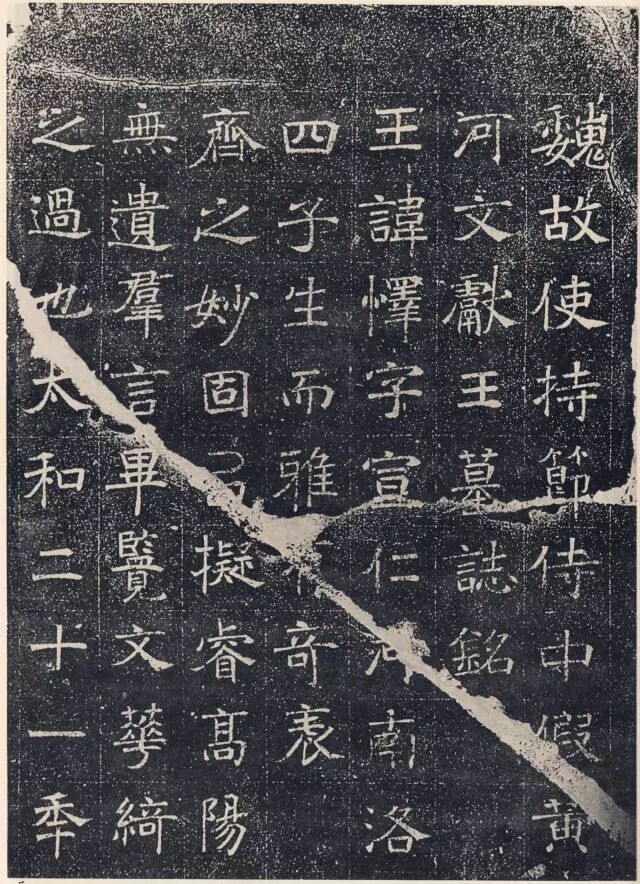 魏故使持節侍中假黄
河文獻王墓誌銘
王諱懌字宣仁河南洛
四子生而雅有奇表
齊之妙固擬睿高陽
無遺羣言畢覽文華綺
之過也太和二十一秊